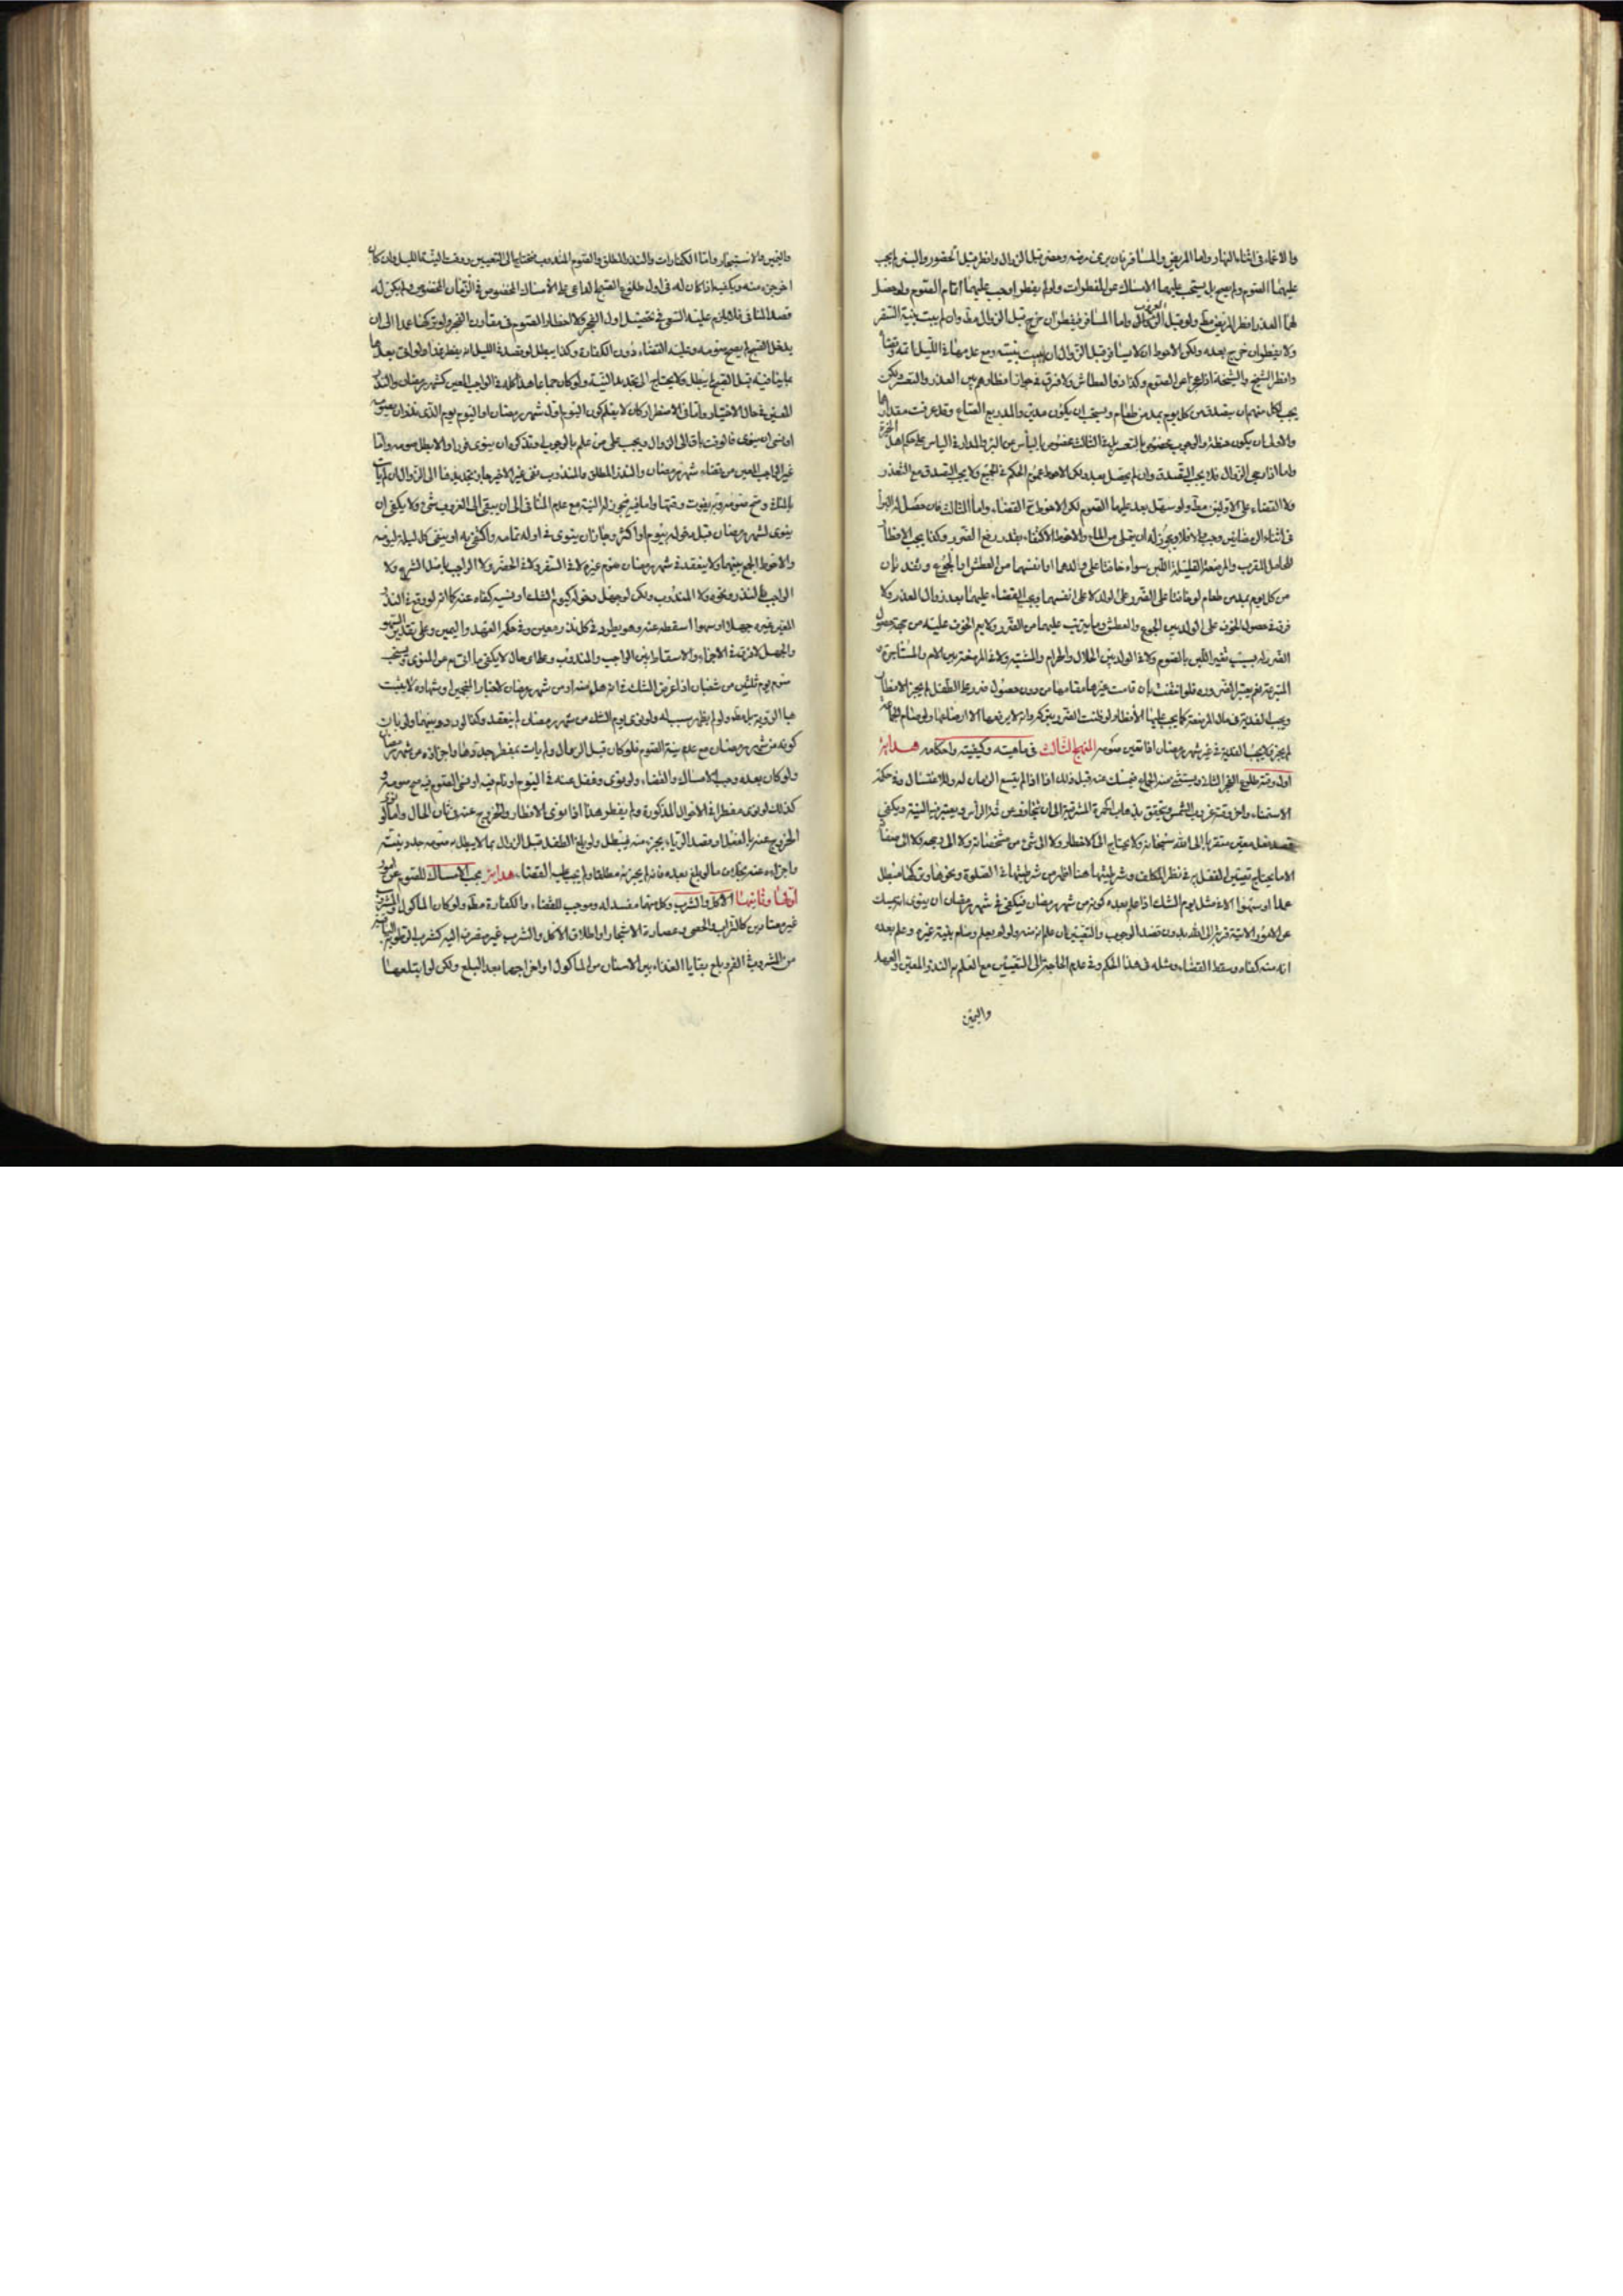 والاغماء فى اثناء النهار واما المريض والمسافر فان برئ من مرضه وحضر قبل الزوال وافطر قبل الحضور والبرء لم يجب
عليهما الصوم ولم يصح بل يستحب عليهما الامساك عن المفطرات ولو لم يفطرا وجب عليهما اتمام الصوم ولو حصل
لهما العذر افطر المريض مط ولو قبل الغروب واما المسافر فيفطر ان خرج قبل الزوال مط وان لم يبيت بنية السفر
ولا يفطر ان خرج بعده ولكن الاحوط ان لا يسافر قبل الزوال ان لم يبيت نيته ومع عدمها فى الليل
وافطر الشيخ والشيخة اذا عجزا عن الصوم وكذا ذو العطاش ولا فرق فى جواز افطارهم بين العذر والتعسر ولكن
يجب لكل منهم ان يتصدق عن كل يوم بمد من طعام ويستحب ان يكون مدين والمد ربع الصاع وقد عرفت مقدارها
والاولى ان يكون حنطة والوجوب مخصوص بالتعسر بل فى الثالث مخصوص باليأس عن البرء والمدار فى الياس على حكم اهل الخبرة
واما اذا رجى الزوال فلا يجب الصدقة وان لم يحصل بعد ولكن الاحوط عموم الحكم فى الجميع ولا يجب التصدق مع التعذر
ولا القضاء على الاولين مط ولو سهل بعد عليهما الصوم لكن الاحوط القضاء واما الثالث فان حصل له البرأ
فى اثناء الرمضانين وجب والا فلا ويجوز له ان يتملى من الماء والاحوط الاكتفاء بقدر رفع الضرر وكذا يجب الافطار
للحامل المقرب والمرضعة القليلة اللبن سواء خافتا على ولدهما او انفسهما من العطش او الجوع وتفديان
من كل يوم بمد من طعام لو خافتا على الضرر على الولد لا على انفسهما ويجب القضاء عليهما بعد زوال العذر ولا
فرق فى حصول الخوف على الولد بين الجوع والعطش وما يترتب عليهما من الضرر ولا يعم الخوف عليه من جهة حصول
الضرر له بسبب تغير اللبن بالصوم ولا فى الولد بين الحلال والحرام والمشتبه ولا فى المرضعة بين الام والمستاجرة و
المتبرعة نعم يعتبر الضرورة فلو انتفت بان قامت غيرها مقامها من دون حصول ضرر على الطفل لم يجز الافطار
لم يجز ولا يجب الفدية فى غير شهر رمضان اذا تعين صومه المنهج الثالث فى ماهيته وكيفيته واحكامه هداية
اول وقته طلوع الفجر الثانى ويستثنى منه الجماع فيمسك عنه قبله وذلك اذا لم يتسع الزمان له وللاغتسال وفى حكمه
الاستمناء واخر وقته غروب الشمس ويتحقق بذهاب الحمرة المشرقية الى ان يتجاوز عن قمة الرأس ويعتبر فيه النية ويكفى
قصد فعل معين متقربا الى الله سبحانه ولا يحتاج الى الاخطار ولا الى شئ من مشخصاته ولا الى وجهه ولا الى صفاته
الا ما يحتاج تعيين الفعل به فى نظر المكلف وشرطيتها هنا اظهر من شرطيتها فى الصلوة ونحوها وتركها مبطل
عمدا او سهوا الا فى مثل يوم الشك اذا علم بعده كونه من شهر رمضان فيكفى فى شهر رمضان ان ينوى انه يمسك
عن الامور الاتية قربة الى الله بدون قصد الوجوب والتعيين فان علم انه منه ولو لم يعلم وصام بنية غيره وعلم بعده
انه منه كفاه وسقط القضاء ومثله فى هذا الحكم وفى عدم الحاجة الى التعيين مع العلم به النذر المعين والعهد
واليمين
واليمين والاستيجار واما الكفارات والنذر المطلق والصوم المندوب فتحتاج الى التعيين ووقت النية الليل وان كان
اخر جزء منه ويكفيه اذا كان له فى اول طلوع الصبح الداعى على الامساك المخصوص فى الزمان المخصوص ولم يكن له
قصد المنافى فلا يلزم عليه السعى فى تحصيل اول الفجر ولا اخطار الصوم فى مقارن الفجر ولو تركها عمدا الى ان
يدخل الصبح لم يصح صومه وعليه القضاء دون الكفارة وكذا يبطل لو قصد فى الليل انه يفطر غدا ولو اتى بعدها
بما ينافيه قبل الصبح لم يبطل ولا يحتاج الى تجديد النية ولو كان جماعا هذا كله فى الواجب المعين كشهر رمضان والنذر
المعين فى حال الاختيار واما فى الاضطرار كان لا يعلم كون اليوم اول شهر رمضان او اليوم يوم الذى نذر ان يصومه
او نسى ان ينوى فالوقت باق الى الزوال ويجب على من علم بالوجوب وتذكر ان ينوى فورا والا بطل صومه واما
غير الواجب المعين من قضاء شهر رمضان والنذر المطلق والمندوب
ينوى لشهر رمضان قبل دخوله بيوم او اكثر وجاز ان ينوى فى اوله تمامه واكتفى به او ينوى كل ليلة ليومه
والاحوط الجمع بينهما ولا ينعقد فى شهر رمضان صوم غيره لا فى السفر ولا فى الحضر ولا الواجب باصل الشرع ولا
الواجب بالنذر ونحوه ولا المندوب ولكن لو جهل دخوله كيوم الشك او نسيه كفاه عنه كما لو وقع فى النذر
المعين غيره جهلا او سهوا اسقطه عنه وهو يطرد فى كل نذر معين وفى حكمه العهد واليمين وعلى تقدير السهو
والجهل لا فرق فى الاجزاء والاسقاط بين الواجب والمندوب وعلى اى حال لا يكفى ما اتى به عن المنوى ويستحب
صوم يوم ثلثين من شعبان اذا عرض الشك فى انه هل منه او من شهر رمضان لاخبار المنجمين او شهادة لا يثبت
كونه من شهر رمضان مع عدم نية الصوم فلو كان قبل الزوال ولم يات بمفطر جددها واجزاه من شهر رمضان
ولو كان بعده وجب الامساك والقضاء ولو نوى وغفل عنه فى اليوم او نام فيه او نسى الصوم فيه صح صومه و
كذلك لو نوى مفطرا فى الاحوال المذكورة ولم يفطر هذا اذا نوى الافطار والخروج عنه فى ثانى الحال واما لو نوى
الخروج عنه بالفعل او قصد الرياء بجزء منه فيبطل ولو بلغ الطفل قبل الزوال بما لا يبطل به صومه جدد نيته
واجزاه عنه بخلاف ما لو بلغ بعده فانه لم يجزئه مطلقا ولم يجب عليه القضاء هداية يجب الامساك للصوم عن امور
اولها وثانيها الاكل والشرب وكل منهما مفسد له وموجب للقضاء والكفارة مط ولو كان الماكول والمشروب
غير معتادين كالتراب والحصى وعصارة الاشجار او اطلاق الاكل والشرب غير منصرف اليه كشرب
من المشروب فى الفم وبلع بقايا الغذاء بين الاسنان من الماكول او اخراجها بعد البلع ولكن لو ابتلعها